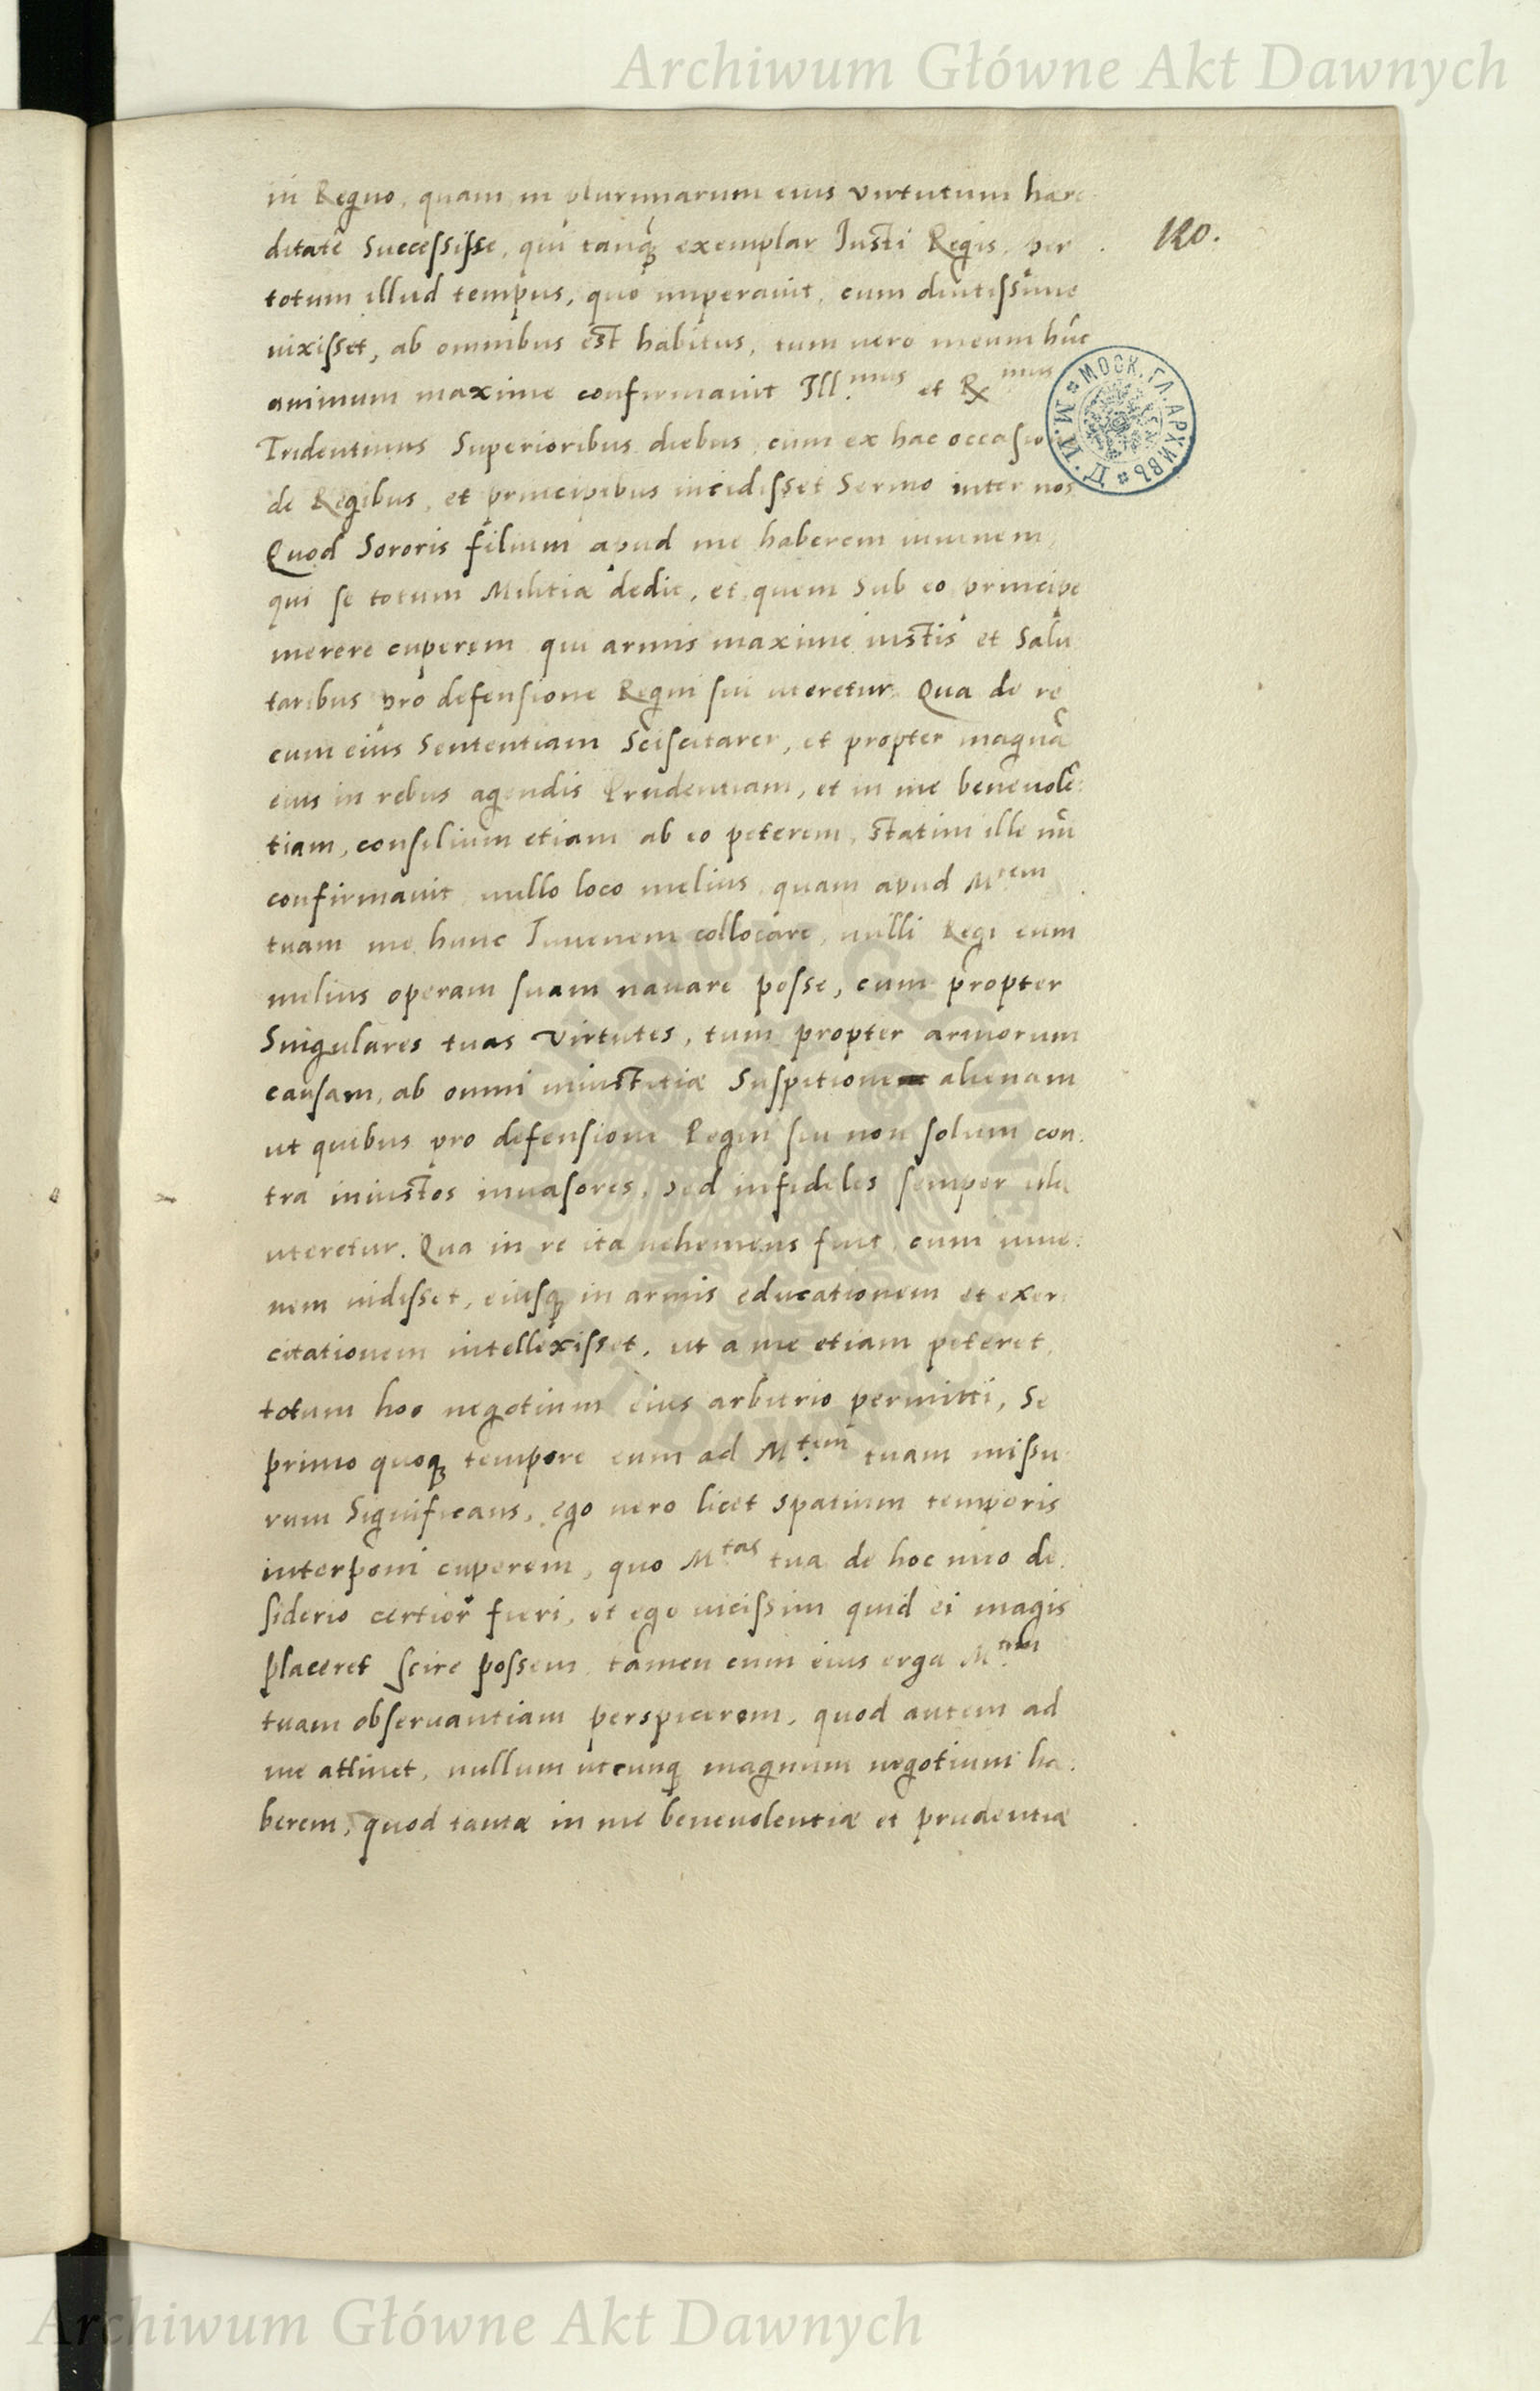 Archiwum Główne Akt Dawnych
in Regno, quam in plurimarum eius virtutum hære
ditate Successisse, qui tanq̃ exemplar Iusti Regis, per
120.
totum illud tempus, quo imperauit, cum diutissime
uixisset, ab omnibus est habitus, tum uero meum hũc
animum maxime confirmauit Ill.mus et R.mus
Tridentinus Superioribus diebus, cum ex hac occasio
de Regibus, et principibus incidisset Sermo inter nos
Quod Sororis filium apud me haberem iuuenem,
qui se totum Militiæ dedit, et quem Sub eo principe
merere cuperem qui armis maxime iustis et Salu
taribus pro defensione Regni sui uteretur. Qua de re
cum eius Sententiam Sciscitarer, et propter magnã
eius in rebus agendis Prudentiam, et in me beneuolẽ:
tiam, consilium etiam ab eo peterem, statim ille mi
confirmauit nullo loco melius quam apud M.tem
tuam me hunc Iuuenem collocare, nulli Regi eum
melius operam suam nauare posse, cum propter
Singulares tuas Virtutes, tum propter armorum
causam, ab omni iniustitiæ Suspitione alienam
ut quibus pro defensione Regni sui non solum con:
tra iniustos inuasores, sed infideles semper
uteretur. Qua in re ita uehemens fuit, cum iuue:
nem uidisset, eiusq̃ in armis educationem et exer
citationem intellexisset, ut a me etiam peteret,
totum hoc negotium eius arbitrio permitti, Se
primo quoq̃ tempore eum ad M.tem tuam missu
rum Significans, ego uero licet spatium temporis
interponi cuperem, quo M.tas tua de hoc meo de
siderio certior fieri, et ego uicissim quid ei magis
placeret scire possem, tamen cum eius erga M.tem
tuam obseruantiam perspicerem, quod autem ad
me attinet, nullum utcunq̃ magnum negotium ha:
berem, quod tantæ in me beneuolentiæ et prudentiæ
МОСК. ГЛ. АРХИВЪ М. И. Д.
Archiwum Główne Akt Dawnych